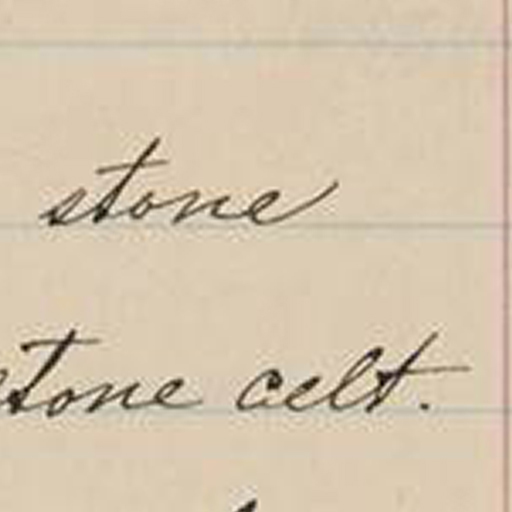 stone
stone celt.